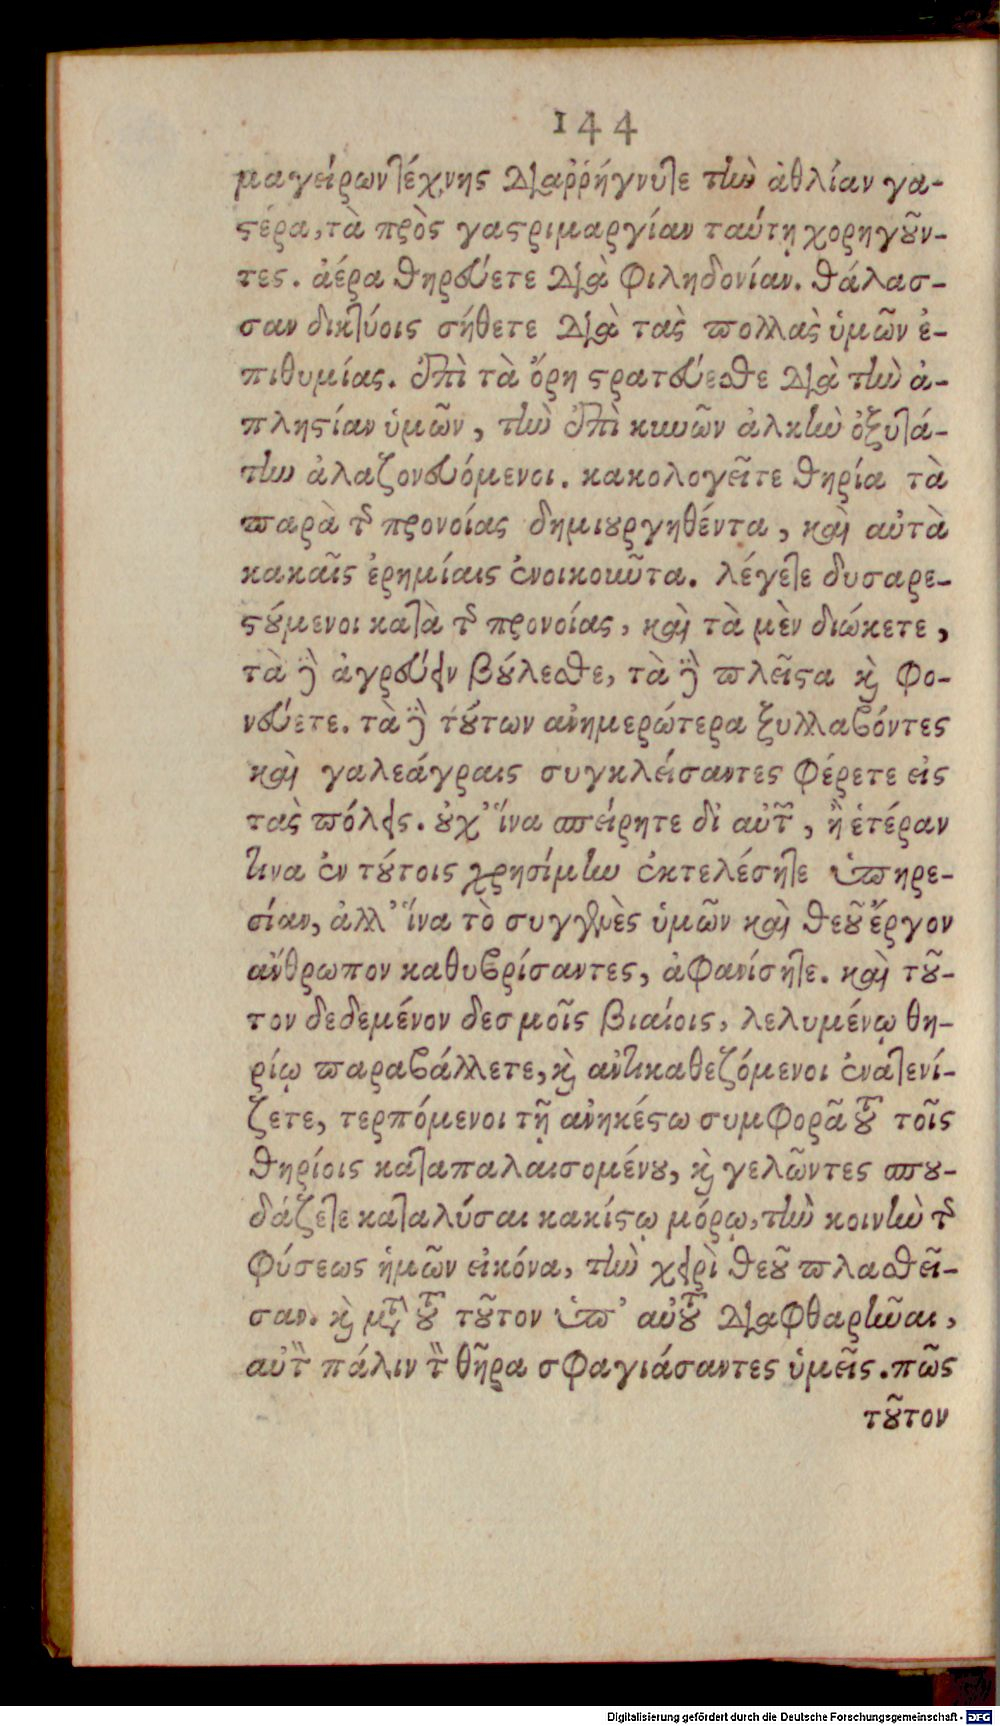 144
μαγείρων τέχνης διαῤῥήγνυτε τὴν ἀθλίαν γα-
στέρα, τὰ πρὸς γαστριμαργίαν ταύτῃ χορηγοῦν-
τες. ἀέρα θηρεύετε διὰ φιληδονίαν. θάλασ-
σαν δικτύοις σήθετε διὰ τὰς πολλὰς ὑμῶν ἐ-
πιθυμίας. ἐπὶ τὰ ὄρη στρατεύεσθε διὰ τὴν ἀ-
πληστίαν ὑμῶν, τὴν ἐπὶ κυνῶν ἀλκὴν ὀξυτά-
την ἀλαζονευόμενοι. κακολογεῖτε θηρία τὰ
παρὰ τῆς προνοίας δημιουργηθέντα, καὶ αὐτὰ
κακαῖς ἐρημίαις ἐνοικοῦντα. λέγετε δυσαρε-
στούμενοι κατὰ τῆς προνοίας, καὶ τὰ μὲν διώκετε,
τὰ δὲ ἀγρεύειν βούλεσθε, τὰ δὲ πλεῖστα καὶ φο-
νεύετε. τὰ δὲ τούτων ἀνημερώτερα ξυλλαβόντες
καὶ γαλεάγραις συγκλείσαντες φέρετε εἰς
τὰς πόλεις. οὐχ' ἵνα σπείρητε δι' αὐτῶν, ἢ ἑτέραν
τινα ἐν τούτοις χρησίμην ἐκτελέσητε ὑπηρε-
σίαν, ἀλλ' ἵνα τὸ συγγενὲς ὑμῶν καὶ θεοῦ ἔργον
ἄνθρωπον καθυβρίσαντες, ἀφανίσητε. καὶ τοῦ-
τον δεδεμένον δεσμοῖς βιαίοις, λελυμένῳ θη-
ρίῳ παραβάλλετε, καὶ ἀντικαθεζόμενοι ἐνατενί-
ζετε, τερπόμενοι τῇ ἀνηκέστω συμφορᾶ τοῦ τοῖς
θηρίοις καταπαλαισομένου, καὶ γελῶντες σπου-
δάζετε καταλύσαι κακίστῳ μόρῳ, τὴν κοινὴν τῆς
φύσεως ἡμῶν εἰκόνα, τὴν χειρὶ θεοῦ πλασθεῖ-
σαν. καὶ μετὰ τοῦ τοῦτον ὑπ' αὐτοῦ διαφθαρῆναι,
αὐτὸν πάλιν τὸν θῆρα σφαγιάσαντες ὑμεῖς. πῶς
τοῦτον
Digitalisierung gefördert durch die Deutsche Forschungsgemeinschaft - DFG